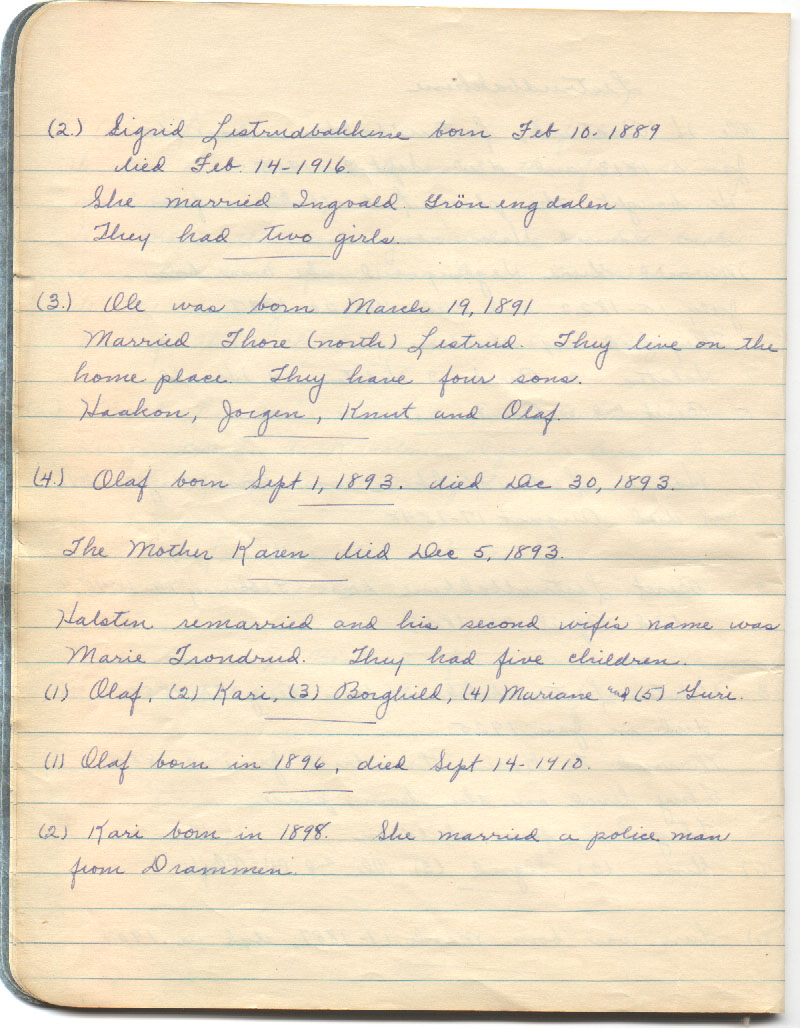 (2.) Sigrid Listrudbakkene born Feb 10-1889
died Feb. 14-1916.
She married Ingvald Gröndalen
They had two girls.
(3.) Ole was born March 19, 1891
Married Thore (north) Listrud. They live on the
home place. They have four sons.
Haakon, Jorgen, Knut and Olaf.
(4.) Olaf born Sept 1, 1893. died Dec 30, 1893.
The Mother Karen died Dec 5, 1893.
Halsten remarried and his second wife's name was
Marie Trondrud. They had five children.
(1) Olaf, (2) Kari, (3) Borghild, (4) Mariane and (5) Guri.
(1) Olaf born in 1896, died Sept 14-1910.
(2) Kari born in 1898. She married a police man
from Drammen.